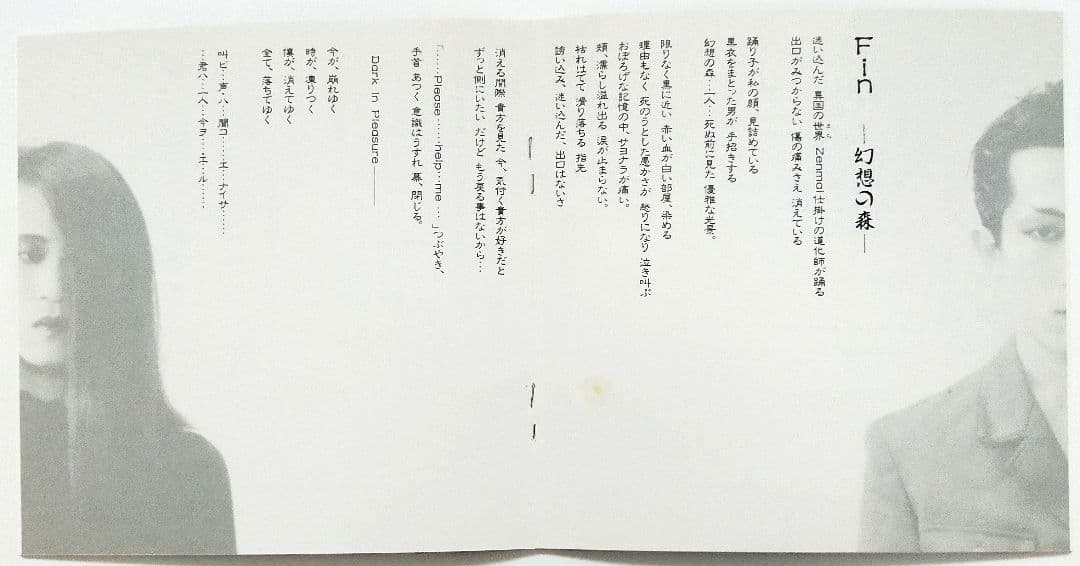 Fin ―幻想の森―
迷い込んだ 異国の世界 Zenmai仕掛けの道化師が踊る
出口がみつからない 傷の痛みさえ 消えている
踊り子が私の顔、見詰めている
黒衣をまとった男が 手招きする
幻想の森…一人…死ぬ前に見た 優雅な光景。
限りなく黒に近い 赤い血が白い部屋、染める
理由もなく 死のうとした愚かさが 怒りになり 泣き叫ぶ
おぼろげな記憶の中、サヨナラが痛い。
頬、濡らし溢れ出る 涙が止まらない。
枯れはてて 滑り落ちる 指先
誘い込み、迷い込んだ、出口はないさ
消える間際 貴方を見た 今、気付く貴方が好きだと
ずっと側にいたい だけど もう戻る事はないから…
「……Please……help…me …」つぶやき、
手首 あつく 意識はうすれ 幕、閉じる。
Dark in Pleasure―――
今が、崩れゆく
時が、凍りつく
僕が、消えてゆく
全て、落ちてゆく
叫ビ…声・ハ…聞コ……エ…ナイサ……
…君ハ…一人…今ヲ…・エ・ル……